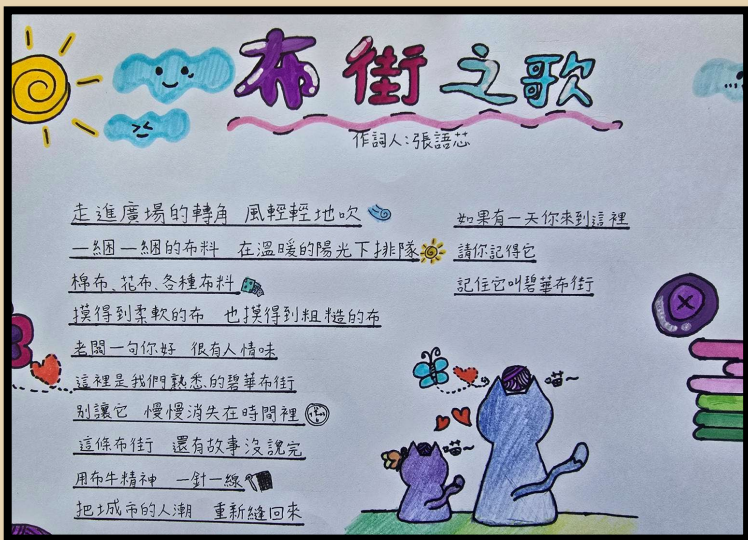 布街之歌
作詞人:張語芯
走進廣場的轉角 風輕輕地吹
一綑一綑的布料 在溫暖的陽光下排隊
棉布、花布、各種布料
摸得到柔軟的布 也摸得到粗糙的布
老闆一句你好 很有人情味
這裡是我們熟悉的碧華布街
別讓它 慢慢消失在時間裡
這條布街 還有故事沒說完
用布牛精神 一針一線
把城市的人潮 重新縫回來
如果有一天你來到這裡
請你記得它
記住它叫碧華布街
喵~
喵~